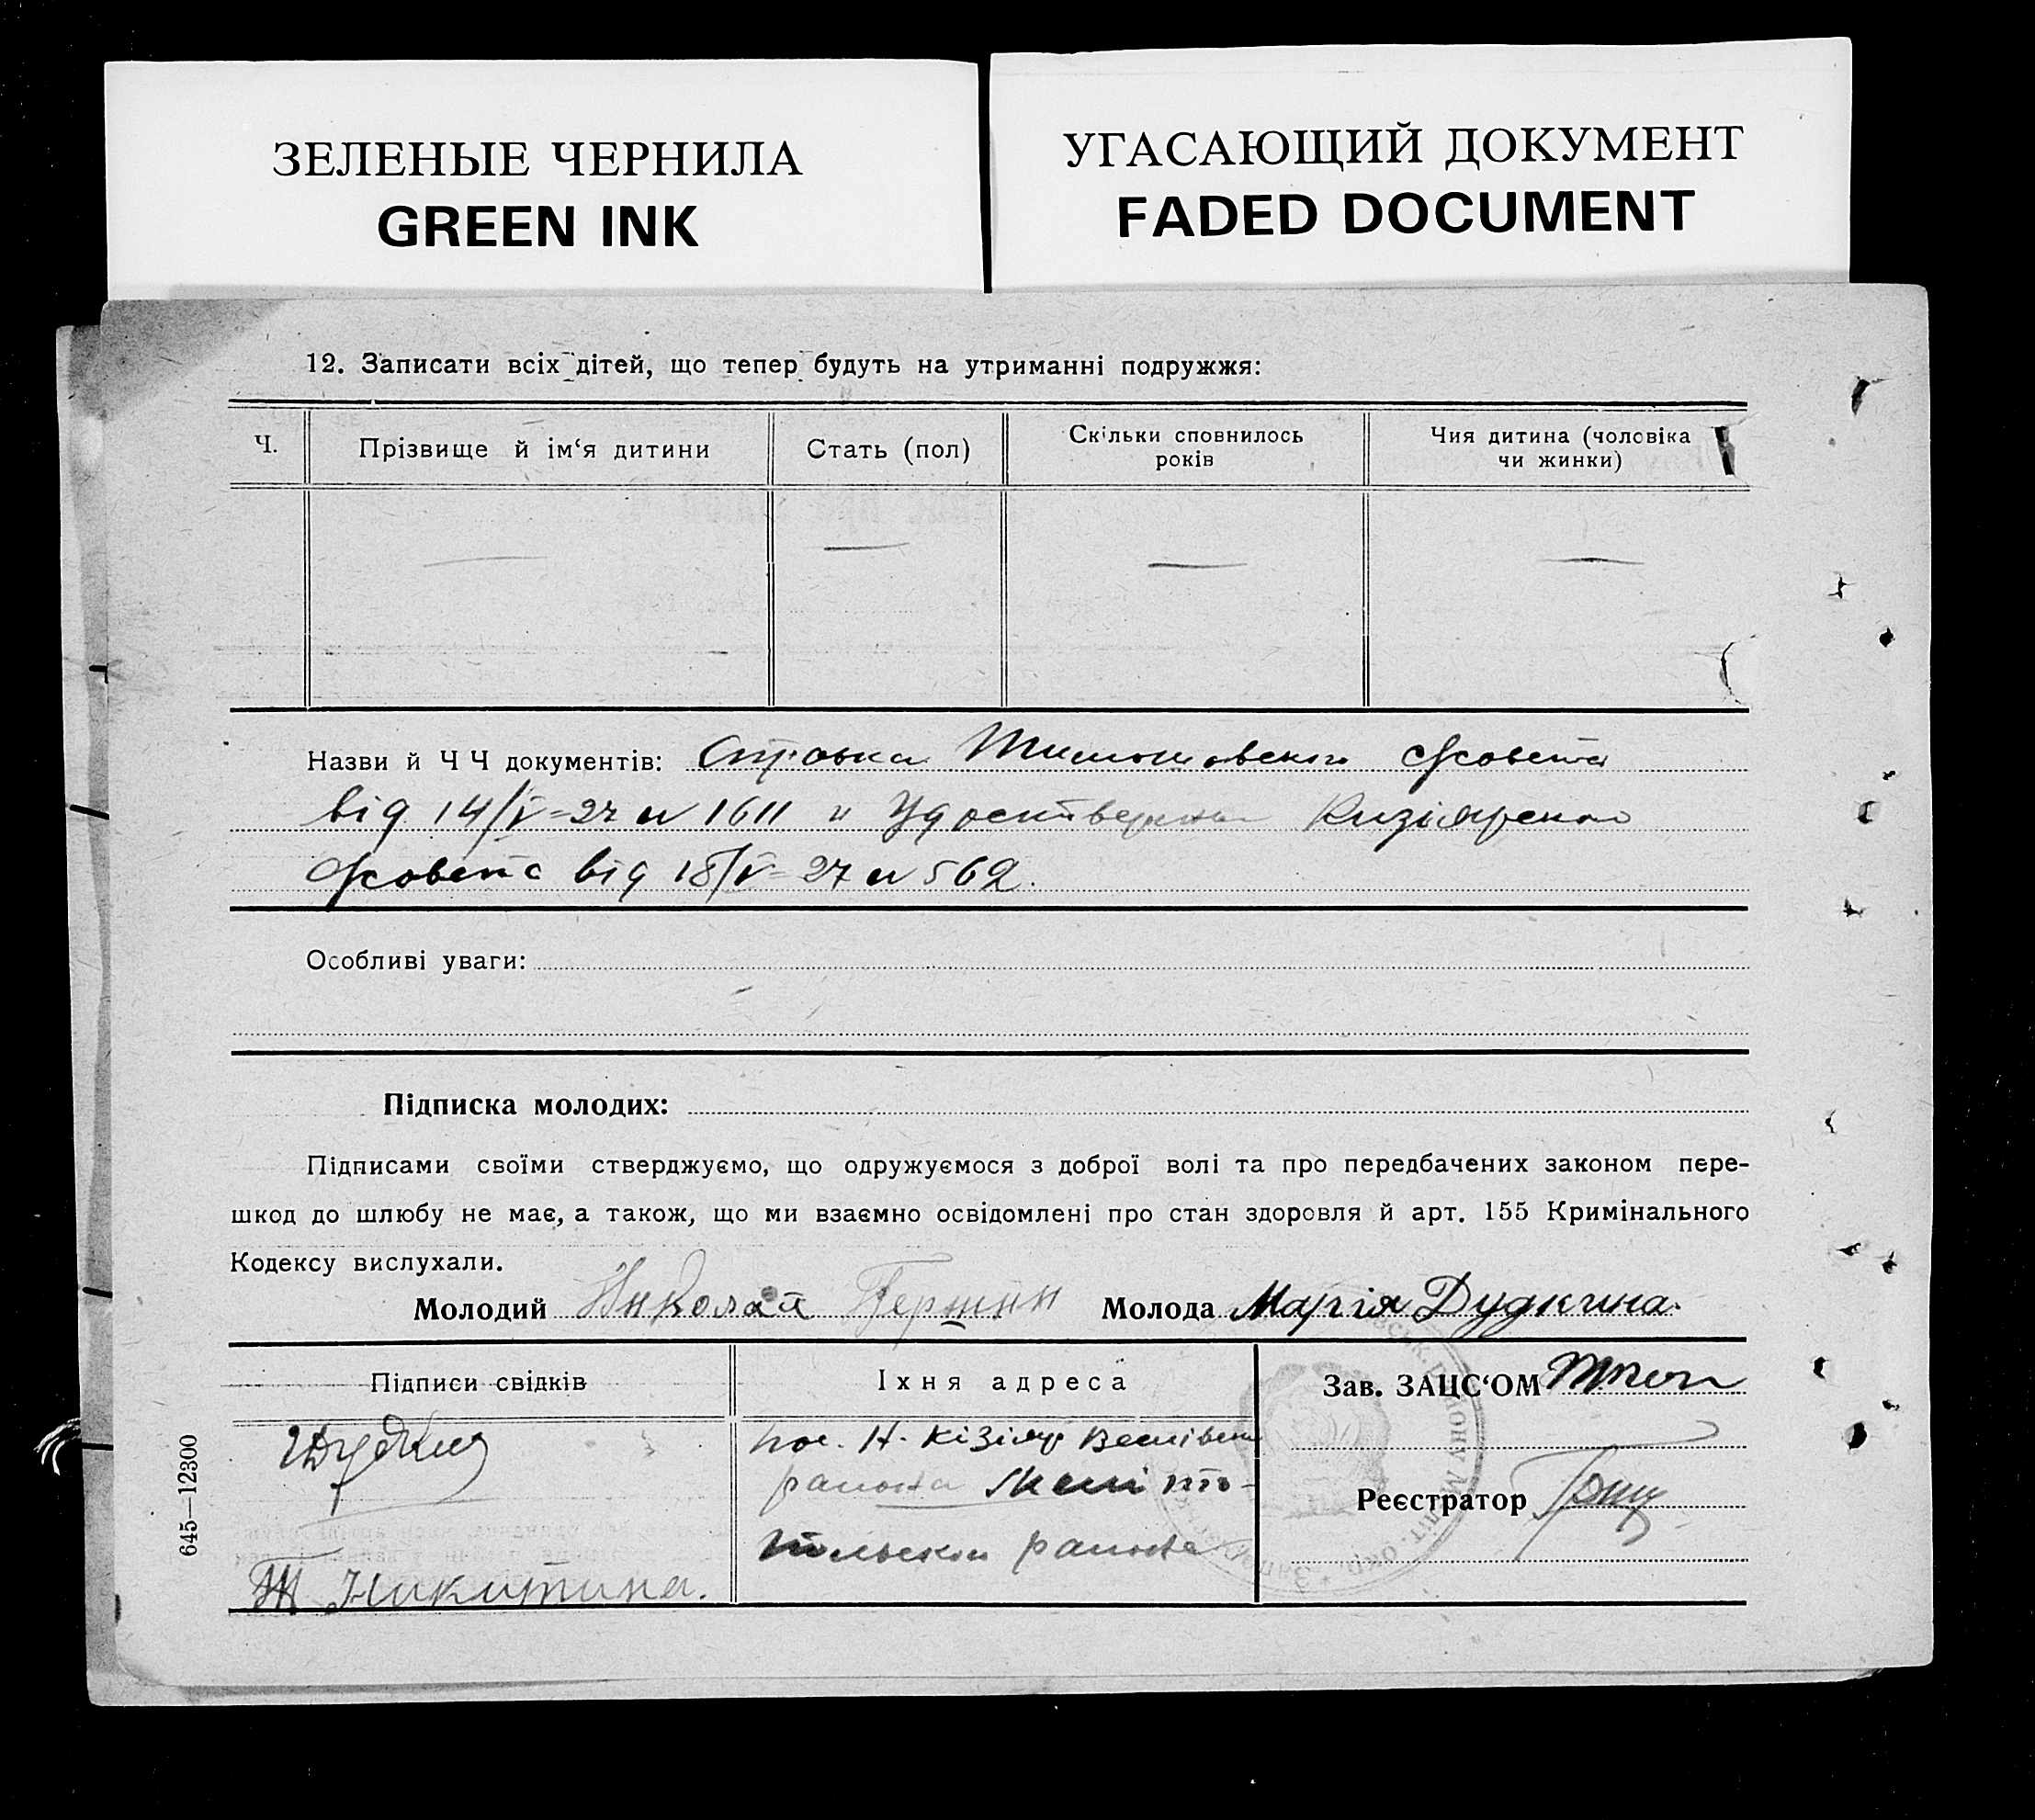 ЗЕЛЕНЫЕ ЧЕРНИЛА
GREEN INK
УГАСАЮЩИЙ ДОКУМЕНТ
FADED DOCUMENT
12. Записати всіх дітей, що тепер будуть на утриманні подружжя:
Ч.
Прізвище й ім‘я дитини
Стать (пол)
Скільки сповнилось
років
Чия дитина (чоловіка
чи жинки)
Назви й Ч Ч документів:
від 14/V-27 N 1611 и
від 18/V-27 N 562.
Особливі уваги:
Підписка молодих:
Підписами своїми стверджуємо, що одружуємося з доброї волі та про передбачених законом пере-
шкод до шлюбу не має, а також, що ми взаємно освідомлені про стан здоровля й арт. 155 Кримінального
Кодексу вислухали.
Молодий Николай Першин Молода Марія Дудкина.
Підписи свідків
Іхня адреса
Зав. ЗАЦС‘ОМ
Н. Кізіяр
района
района
Реєстратор
Никитина.
645—12300